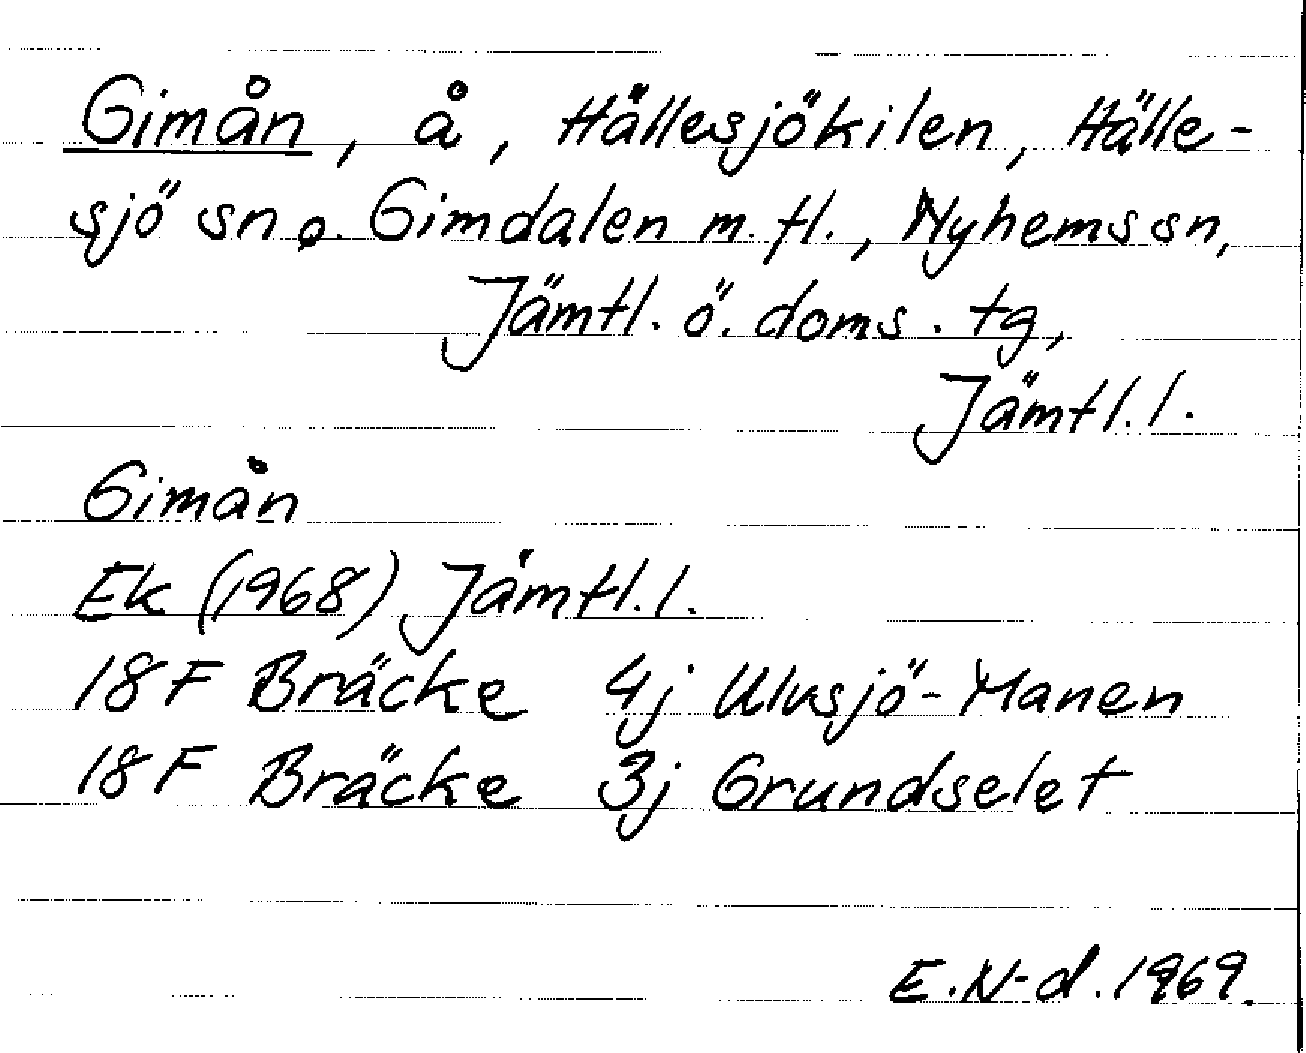 Gimån, å, Hällesjökilen, Hälle-
sjö sn o. Gimdalen m.fl., Nyhems sn,
Jämtl. ö. doms. tg,
Jämtl. l.
Gimån
Ek (1968) Jämtl. l.
18 F Bräcke 4j Ulvsjö-Manen
18 F Bräcke 3j Grundselet
E. N-d. 1969.